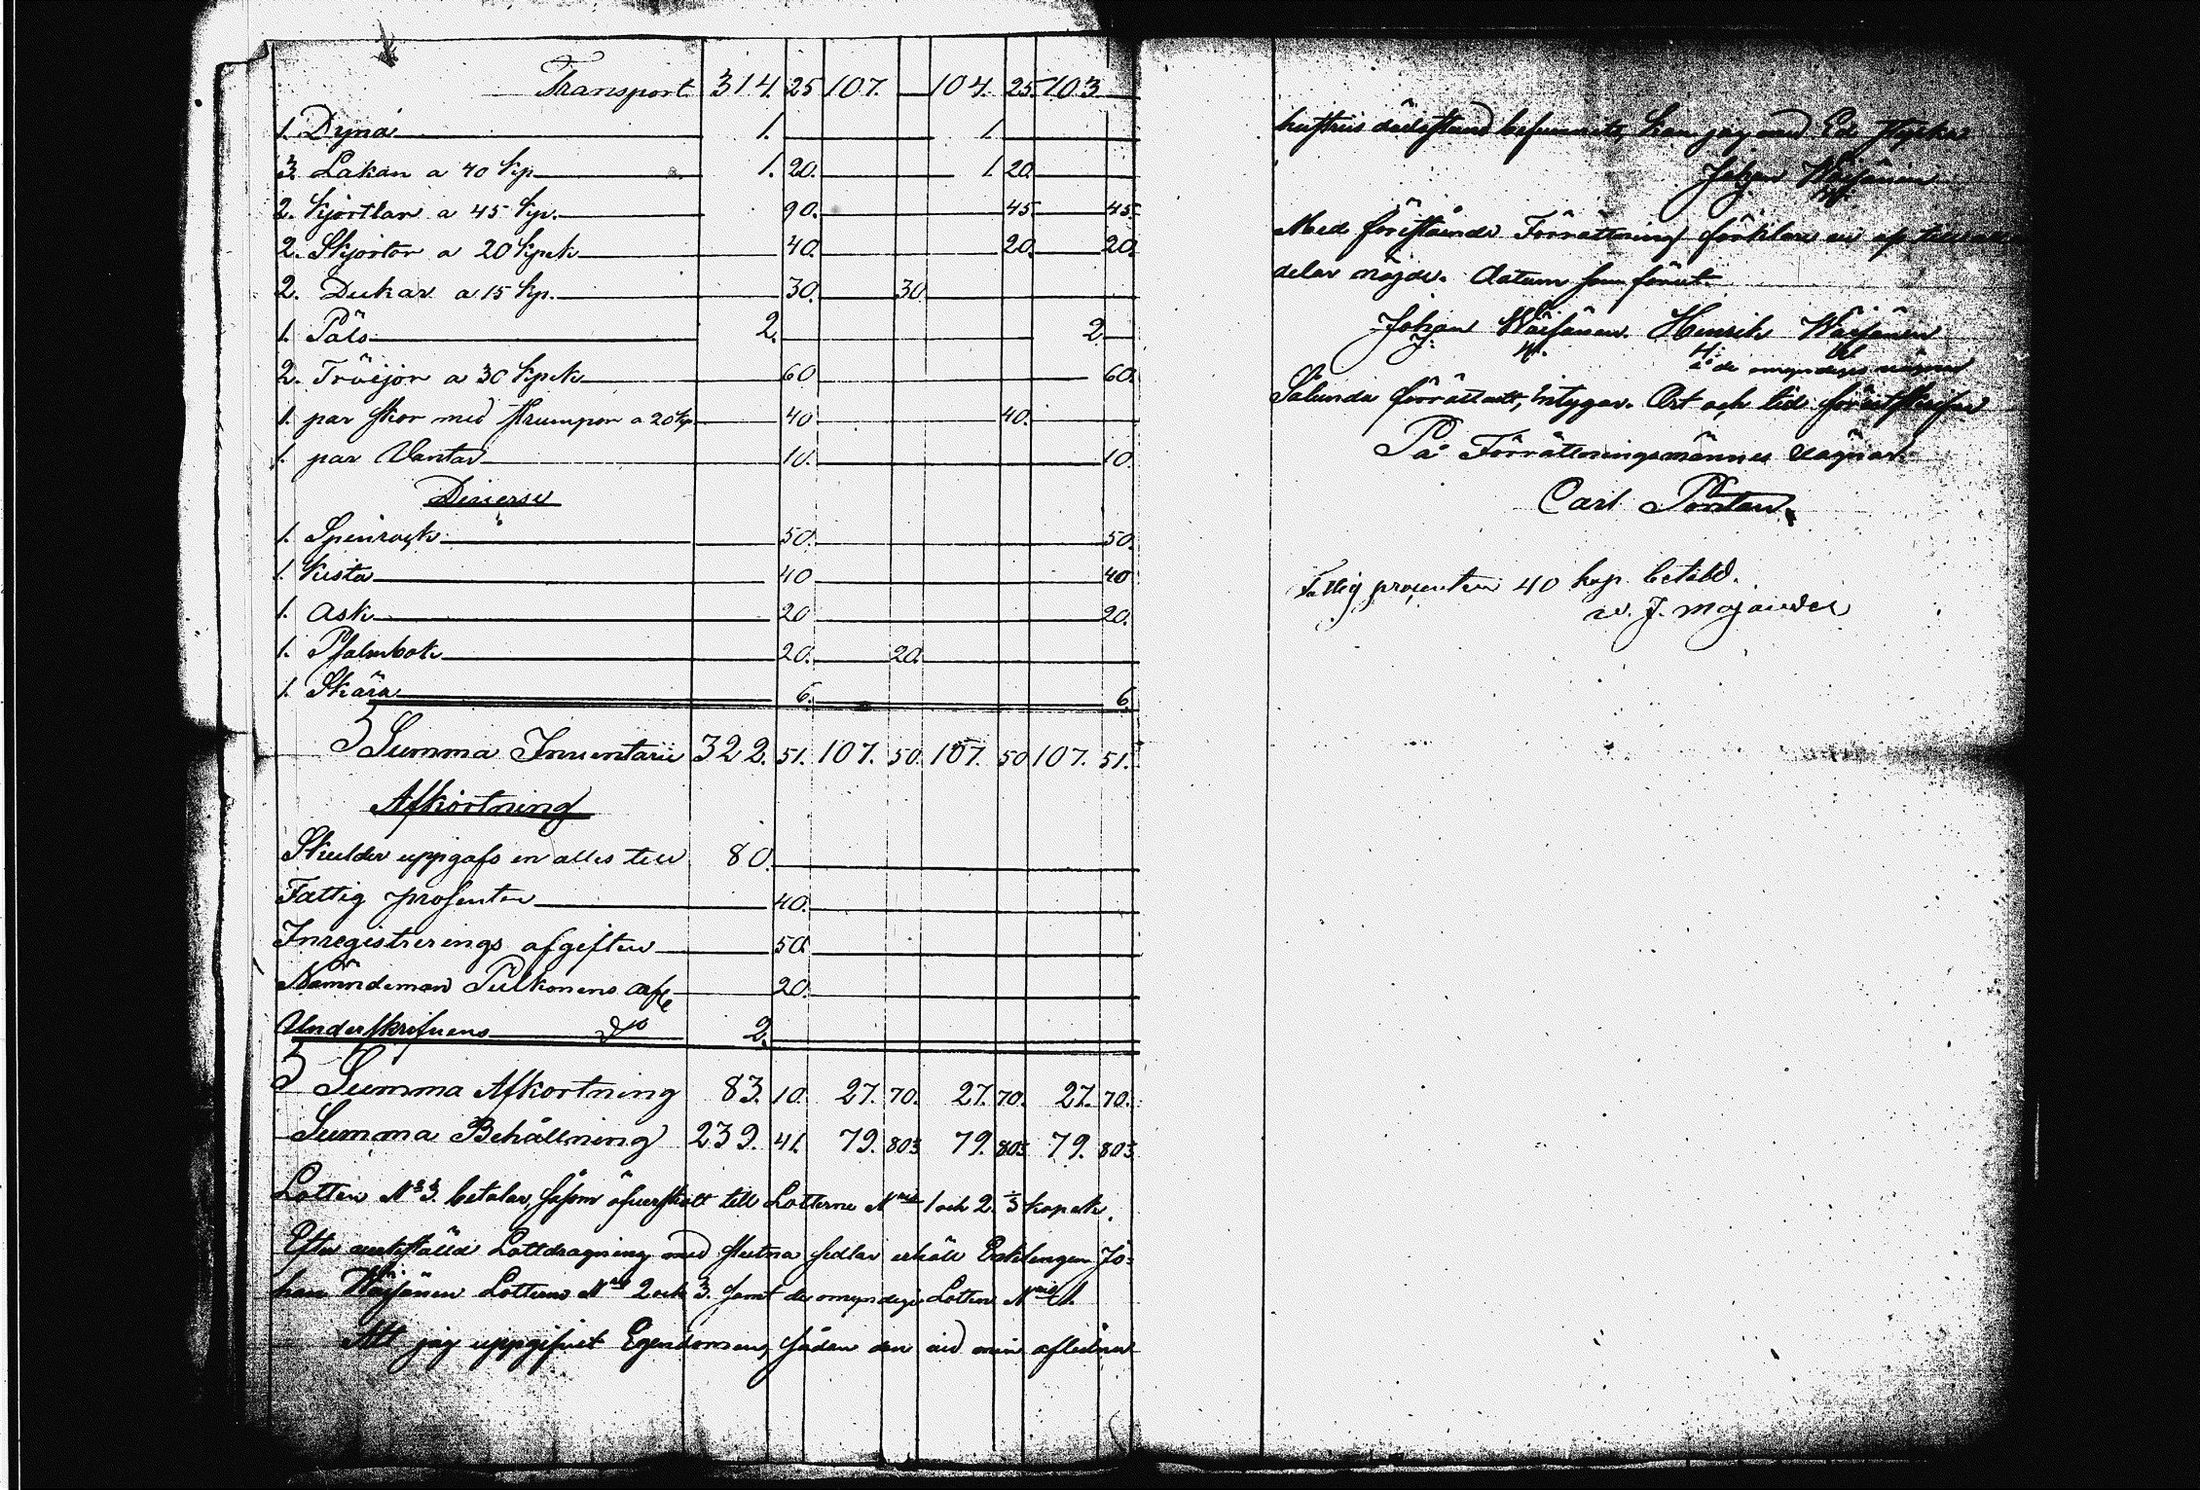 Transport 314. 25 107. — 104. 25. 103 —
1. Dyna 1. 1.
3. Lakan a 40 Kp 1. 20. 1. 20.
2. Kjortlar a 45 Kp. 90. 45 45.
2. Skjortor a 20 Kpek 40. 20. 20.
2. Dukar a 15 Kp. 30. 30.
1. Päls 2. 2
2. Tröijor a 30 Kpek 60 60.
1. par skor med strumpor a 20 Kp 40 40.
1. par Vantar 10. 10.
Diverse
1. Spinrock 50. 50.
1. Kista 40 40
1. Ask 20 20.
1. Psalmbok 20. 20.
1. Skära 6. 6.
Summa Inventarie 322. 51. 107. 50. 107. 50 107. 51.
Afkortning
Skulder uppgafs en alles till 80.
Fattig prosenten 40.
Inregistrerings afgiften 50.
Nämndeman Pulkonens
20.
Underskrifvens do 2.
Summa Afkortning 83. 10. 27. 70. 27. 70. 27. 70.
Summa Behållning 239. 41. 79. 803 79. 803 79. 803
Lotten No 3. betalar, såsom öfverskott till Lotterne 1 och 2. 2/3 kopek.
Efter anstäld Lottdragning med slutna sedlar erhöll Enklingen Jo-
han Wäisänen Lotterne 2 och 3. samt de omyndige Lotten 1.
Att jag uppgifvit Egendomen, sådan den vid min aflidna
hustrus dödsstund befunnits, kan jag med Ed styrka
Johan Wäisänen
Med förestående Förrättning förklara vi
delar nöjde. Datum som förut.
Johan Wäisänen. Henrik Wäisänen
å de omyndiges vägnar
Sålunda förrättadt, intygar. Ort och tid förutskrefne
På Förrättningsmännes vägnar.
Carl
Fattig procenten 40 kop. betald.
J. Majander